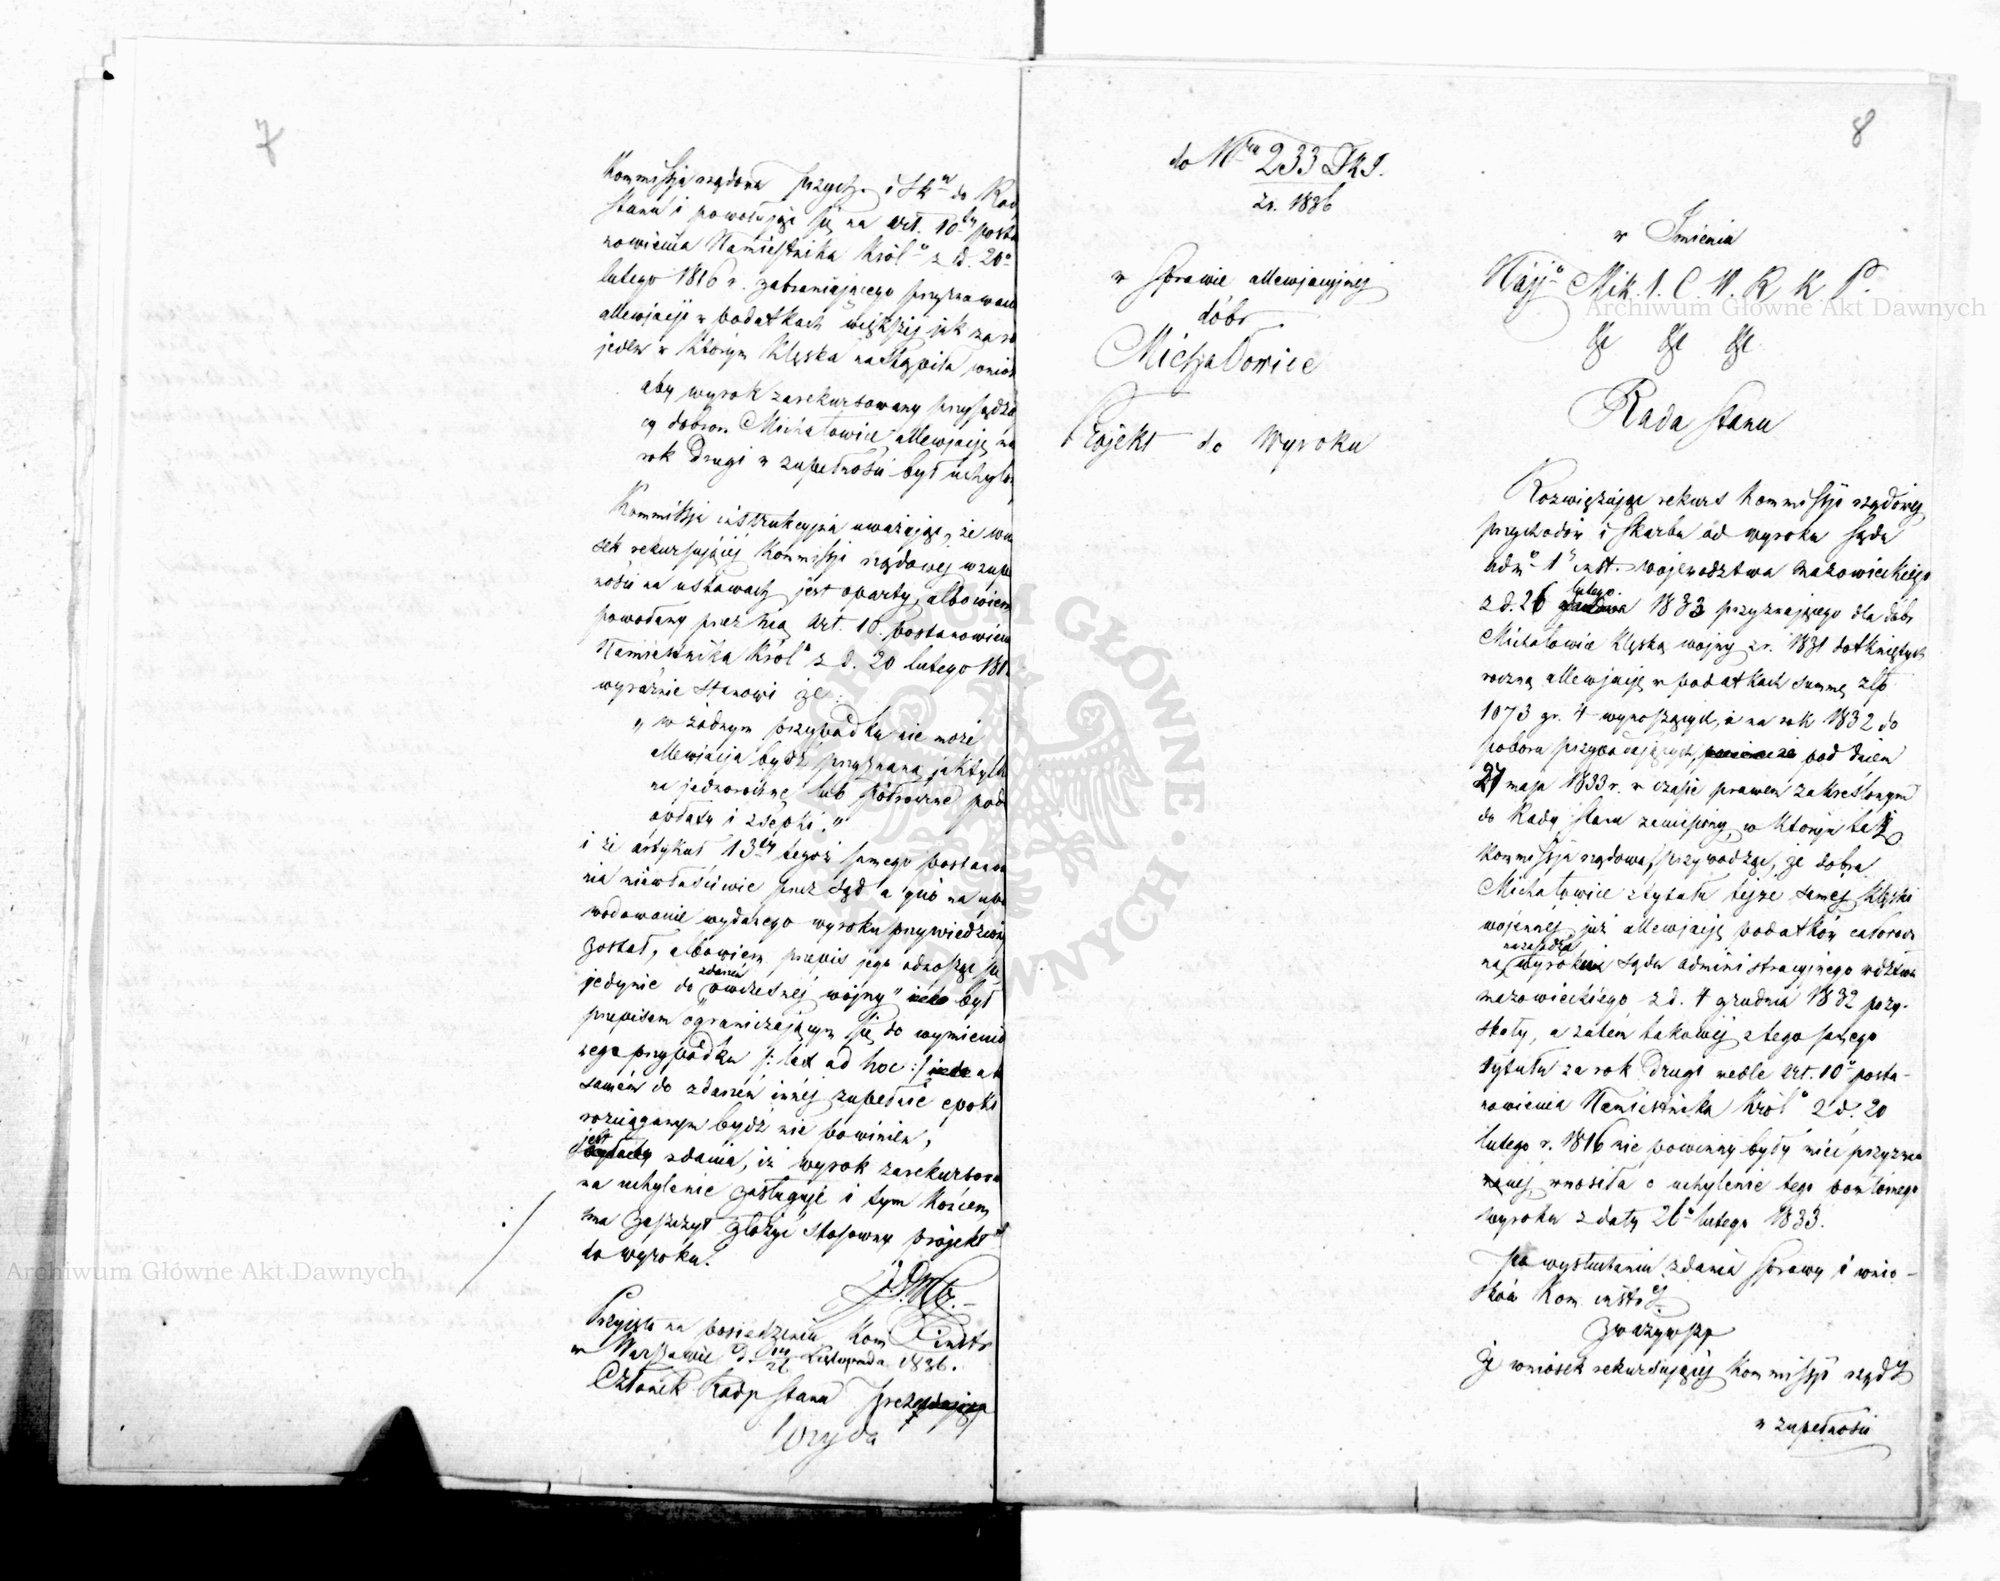 7
Kommissja rządowa Przych. i Sk. do Rad
Stanu i powołując się na art. 10ty posta
nowienia Namiestnika Król° z d. 20°
lutego 1816 r. zabraniającego przyznawan
allewjacje w podatkach większej jak za r
jeden w którym klęska nastąpiła wnios
aby wyrok zarekursowany przysądza
cy dobrom Michałowice, allewjację na
rok drugi w zupełności był uchylon
Kommissja instrukcyjna uważając, że wnio
sek rekursującej Kommissji rządowej w zupeł
ności na ustawach jest oparty, albowiem
powołany przez nią Art. 10. postanowienia
Namiestnika Król° z d. 20 lutego 181
wyraźnie stanowi że:
„w żadnym przypadku nie może
allewiacja bydź przyznana, jak tylko
na jednoroczne lub półroczne pod
opłaty i zsepki."
i że artykuł 13ty tegoż samego postano
nia niewłaściwie przez Sąd a quo na upo
wodowanie wydanego wyroku przywiedziony
został, albowiem przepis jego odnosząc się
jedynie do zdarzeń „owczesnej wojny" był
przepisem ograniczającym się do wymienio
nego przypadku /: lex ad hoc :/ a t
samem do zdarzeń innej zupełnie epoki
rozciąganym bydź nie powinien,
jest zdania, iż wyrok zarekursowa
na uchylenie zasługuje i tym końcem
ma zaszczyt złożyć stosowny projekt
do wyroku.
Przyjęto na posiedzeniu Kom instr
w Warszawie d. Listopada 1836.
Członek Rady Stanu Prezydujący
Woyda
8
do Nru 233 TRS.
z r. 1836
w Sprawie allewjacyjnej
dóbr
Michałowice
Projekt do Wyroku
w Imieniu
Najj° Mik. I. C. W. R. K. P.
&c &c &c
Rada Stanu
Rozwiązując rekurs Kommissji rządowej
przychodów i skarbu od wyroku Sądu
Adm° 1 inst. województwa mazowieckiego
z d. 26 lutego 1833 przyznającego dla dóbr
Michałowice klęską wojny z r. 1831 dotkniętych
roczną allewjację w podatkach summę złp
1073 gr. 4 wynoszących, a na rok 1832 do
poboru przypadających, pod dniem
27 maja 1833 r. w czasie prawem zakreślonym
do Rady Stanu zaniesiony, w którym taż
Kommissja rządowa, przywodząc, że dobra
Michałowice z tytułu tejże samej klęski
wojennej już allewjację podatków całorocz
ną na zasadzie wyroku Sądu administracyjnego wdztwa
mazowieckiego z d. 4 grudnia 1832 pozy-
skały, a zatem takowej z tego samego
tytułu za rok drugi wedle Art. 10° posta-
nowienia Namiestnika Król° z d. 20
lutego r. 1816 nie powinny były mieć przyzna
nej, wnosiła o uchylenie tego powtórnego
wyroku z daty 26° lutego 1833.
Po wysłuchaniu zdania sprawy i wnio-
sków Kom. instr.
Zważywszy
Że wniosek rekursującej Kommissji rządej
w zupełności
Archiwum Główne Akt Dawnych
Archiwum Główne Akt Dawnych
ARCHIWUM GŁÓWNE · AKT DAWNYCH ·